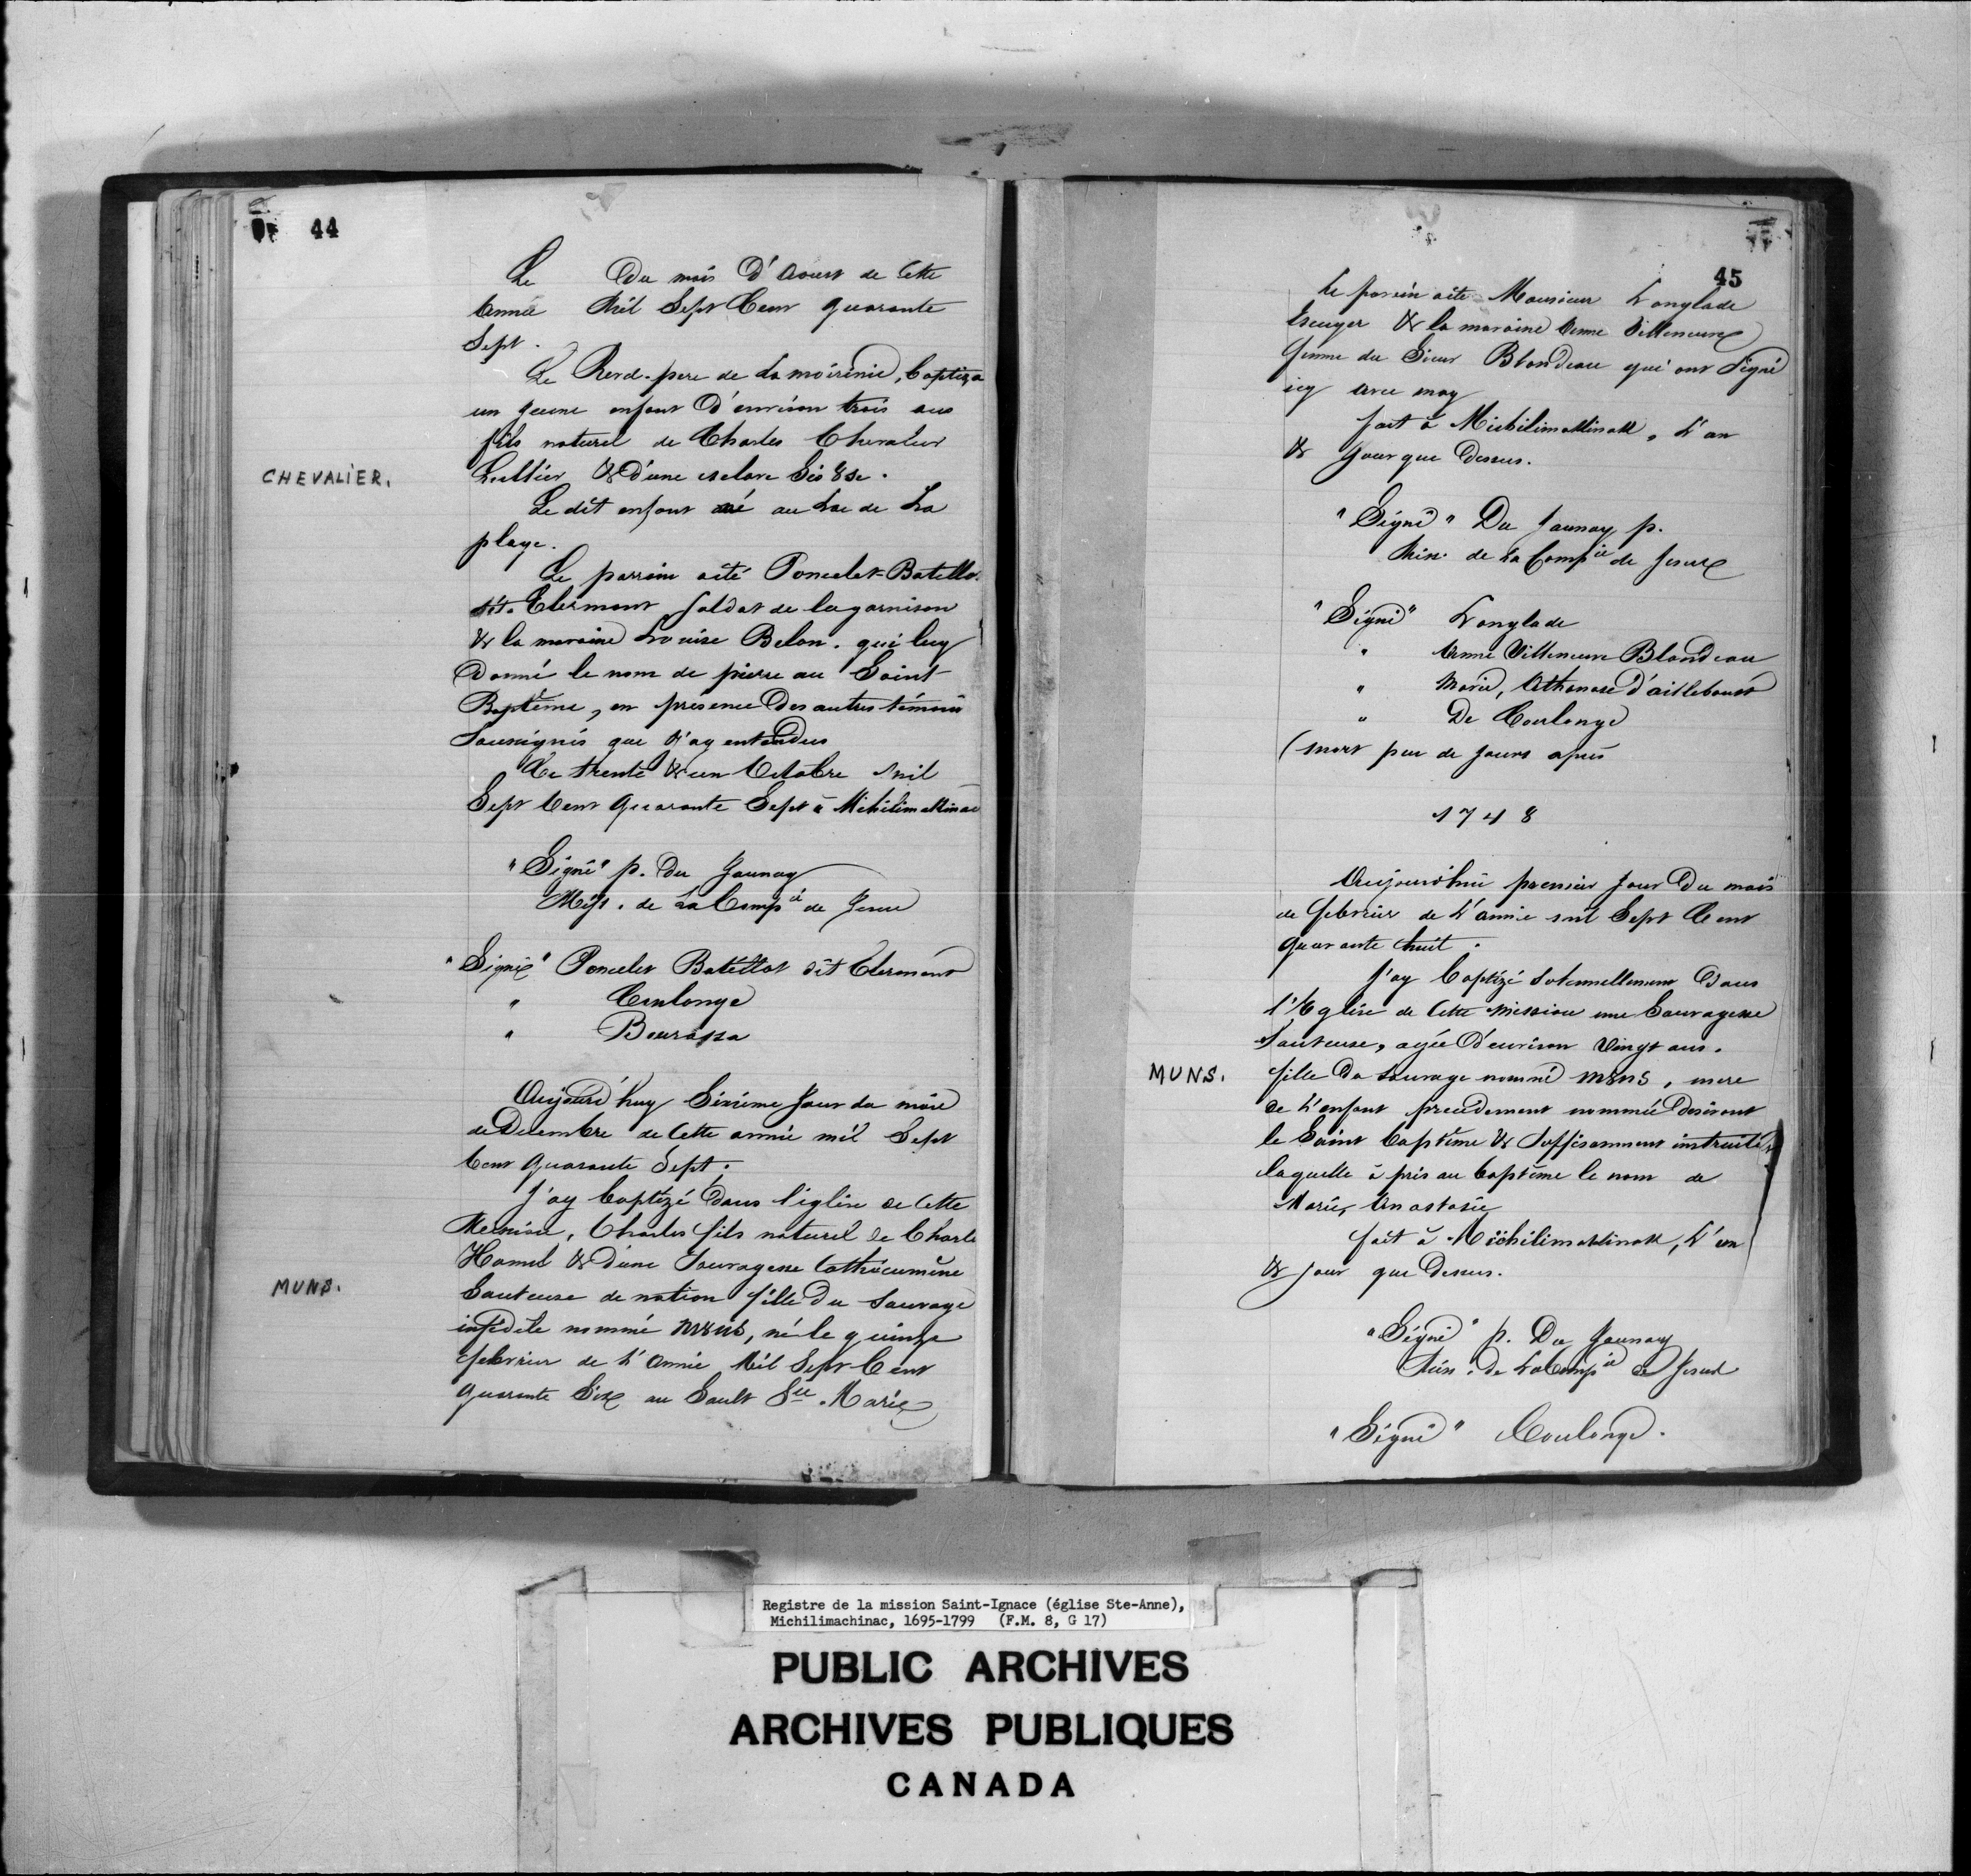 44
Le Du mois D'Aoust de Cette
Année Mil Sept Cent quarante
Sept.
Le Revd. pere de La moirinie, baptiza
un jeune enfant D'environ trois ans
fils naturel de Charles Chevalier
CHEVALIER.
Lullier & D'une esclave Sis8se.
Le dit enfant né au Lac de La
playe.
Le parrain aité Poncelet Batillo
dit. Clermont soldat de la garnison
& la maraine Louise Belon. qui luy
Donné le nom de pierre au Saint
Baptême, en présence Des autres témoins
Sousignés que J'ay entendus
Ce trente & un Octobre Mil
Sept Cent Quarante Sept à Michilimakinac
"Signé" p. Du Jaunay
Miss. de La Compie de Jesus
"Signé" Poncelet Batillot dit Clermont
" Coulonge
" Bourassa
Aujourd'huy Sixième Jour du mois
de Decembre de Cette année mil Sept
Cent Quarante Sept.
J'ay baptizé Dans l'église de Cette
Mission, Charles fils naturel de Charle
Hamel & D'une Sauvagesse Cathécumène
MUNS.
Sauteuse de nation fille Du Sauvage
infidele nommé M8ns, né le quinze
febvrier de L'Année Mil Sept Cent
quarante Six au Sault Ste. Marie
45
le parein aité Monsieur Langlade
Escuyer & la maraine Anne Villeneuve
femme du Sieur Blondeau qui ont Signé
icy avec moy
fait à Michilimakinak, L'an
& Jour que Dessus.
"Signé" Du Jaunay p.
Miss. de La Compie de Jesus
"Signé" Langlade
" Anne Villeneuve Blondeau
" Marie, Athanase D'ailleboust
" De Coulonge
(mort peu de Jours après
1748
Aujourd'hui premier Jour Du mois
de febvrier de L'année mil Sept Cent
quarante huit.
J'ay baptizé solennellement Dans
l'Eglise de Cette Mission une Sauvagesse
Sauteuse, agée D'environ Vingt ans.
MUNS.
fille Du Sauvage nommé M8ns, mere
de L'enfant precedement nommée Desirant
le Saint baptême & Suffisamment instruite
laquelle à pris au baptême le nom de
Marie, Anastasie
fait à Michilimakinak, L'an
& jour que Dessus.
"Signé" p. Du Jaunay
Miss. de La Compie de Jesus
"Signé" Coulonge.
Registre de la mission Saint-Ignace (église Ste-Anne),
Michilimachinac, 1695-1799 (F.M. 8, G 17)
PUBLIC ARCHIVES
ARCHIVES PUBLIQUES
CANADA